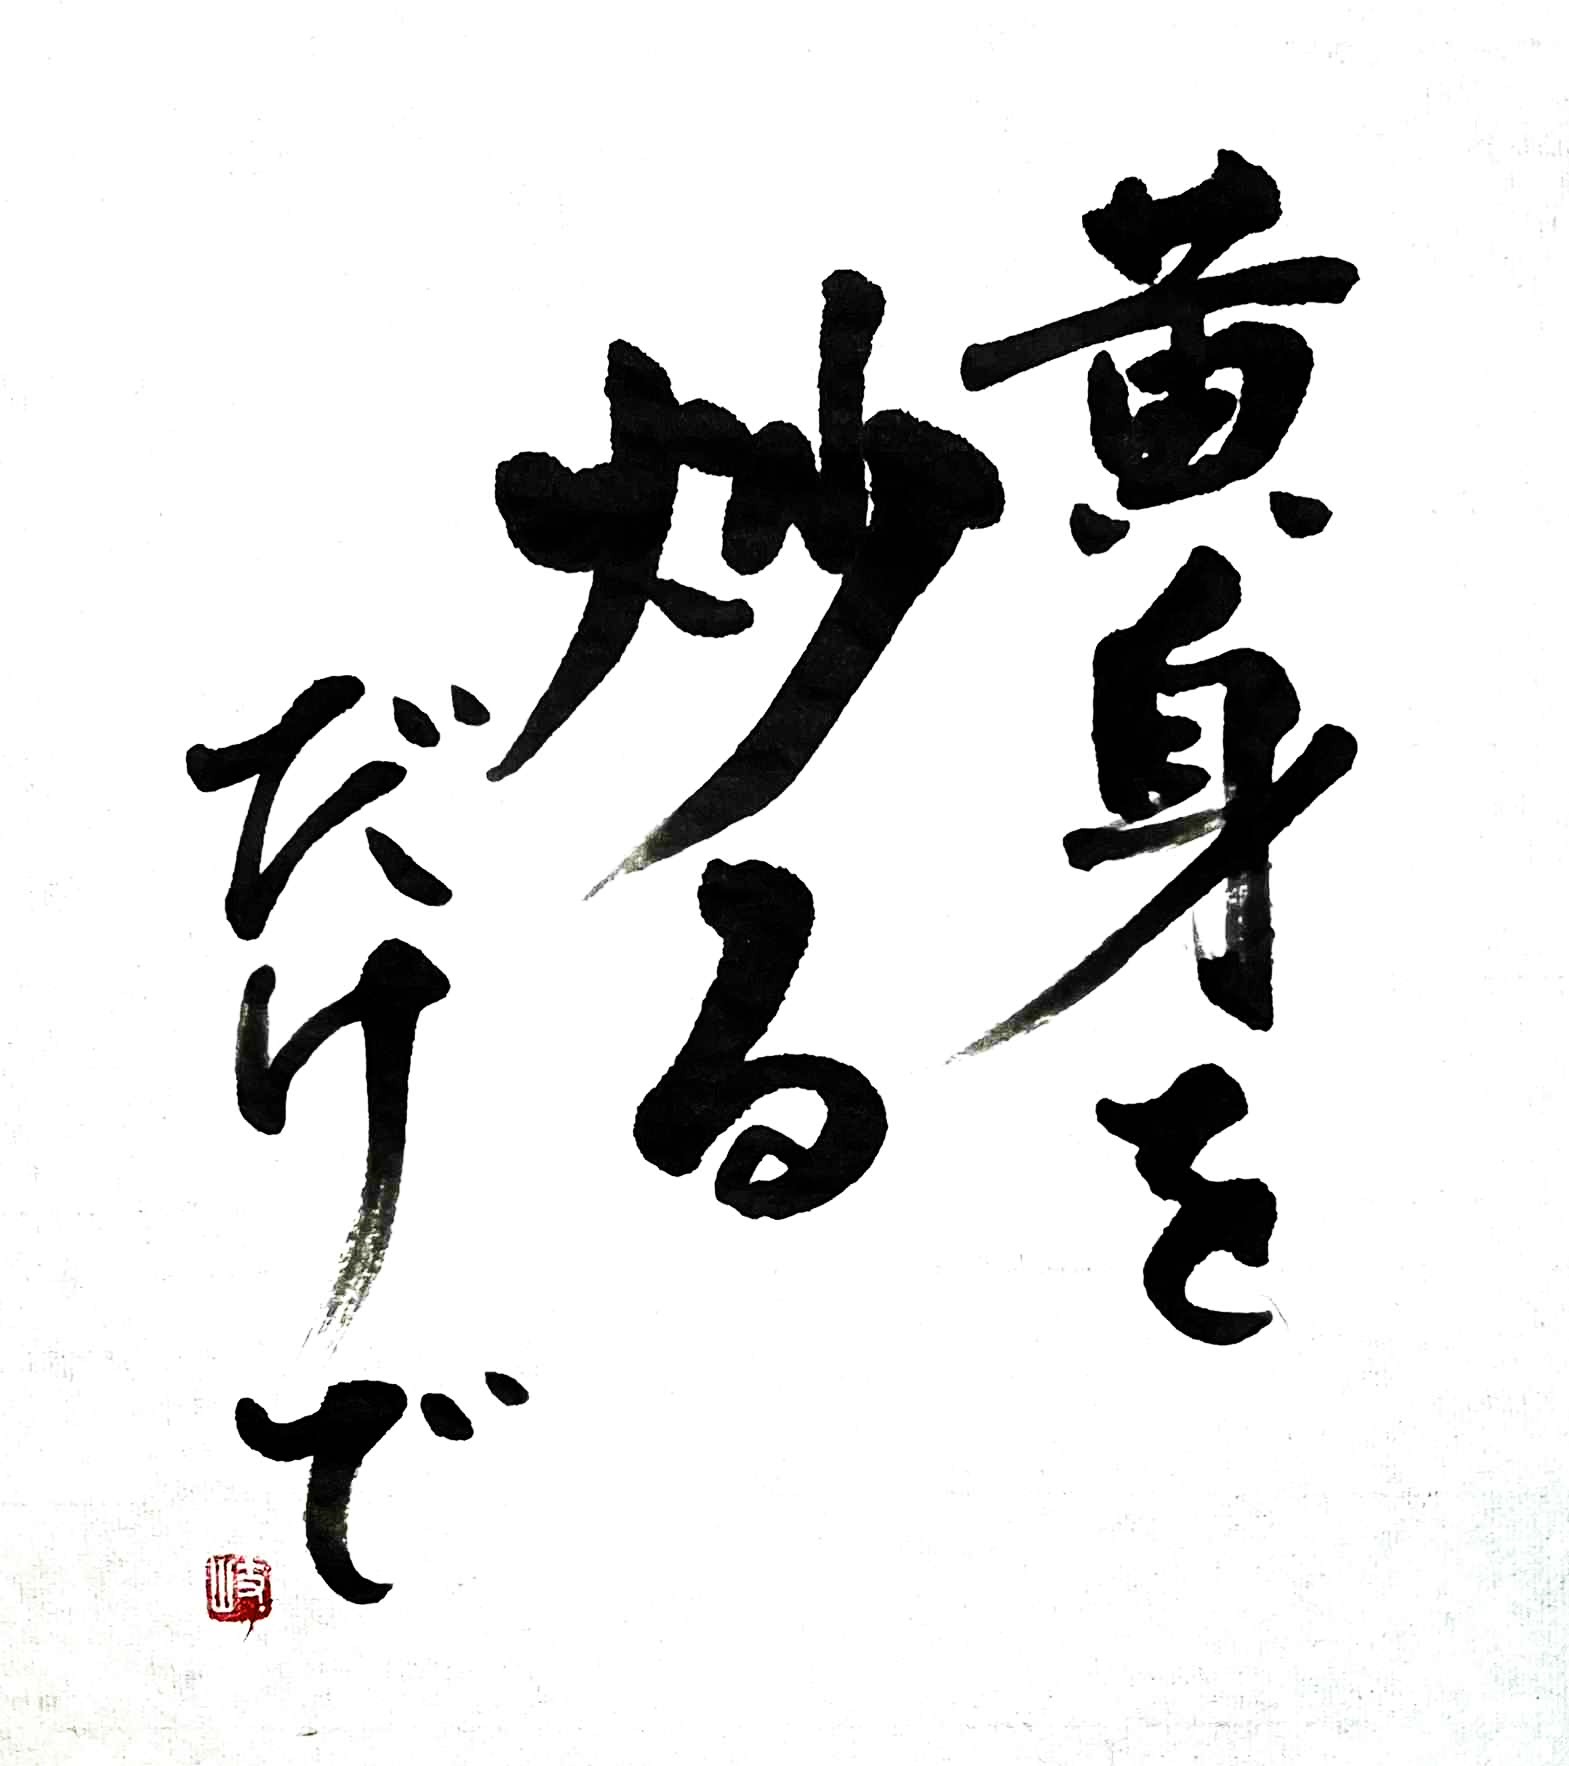 黄身を
炒る
だけで
岐